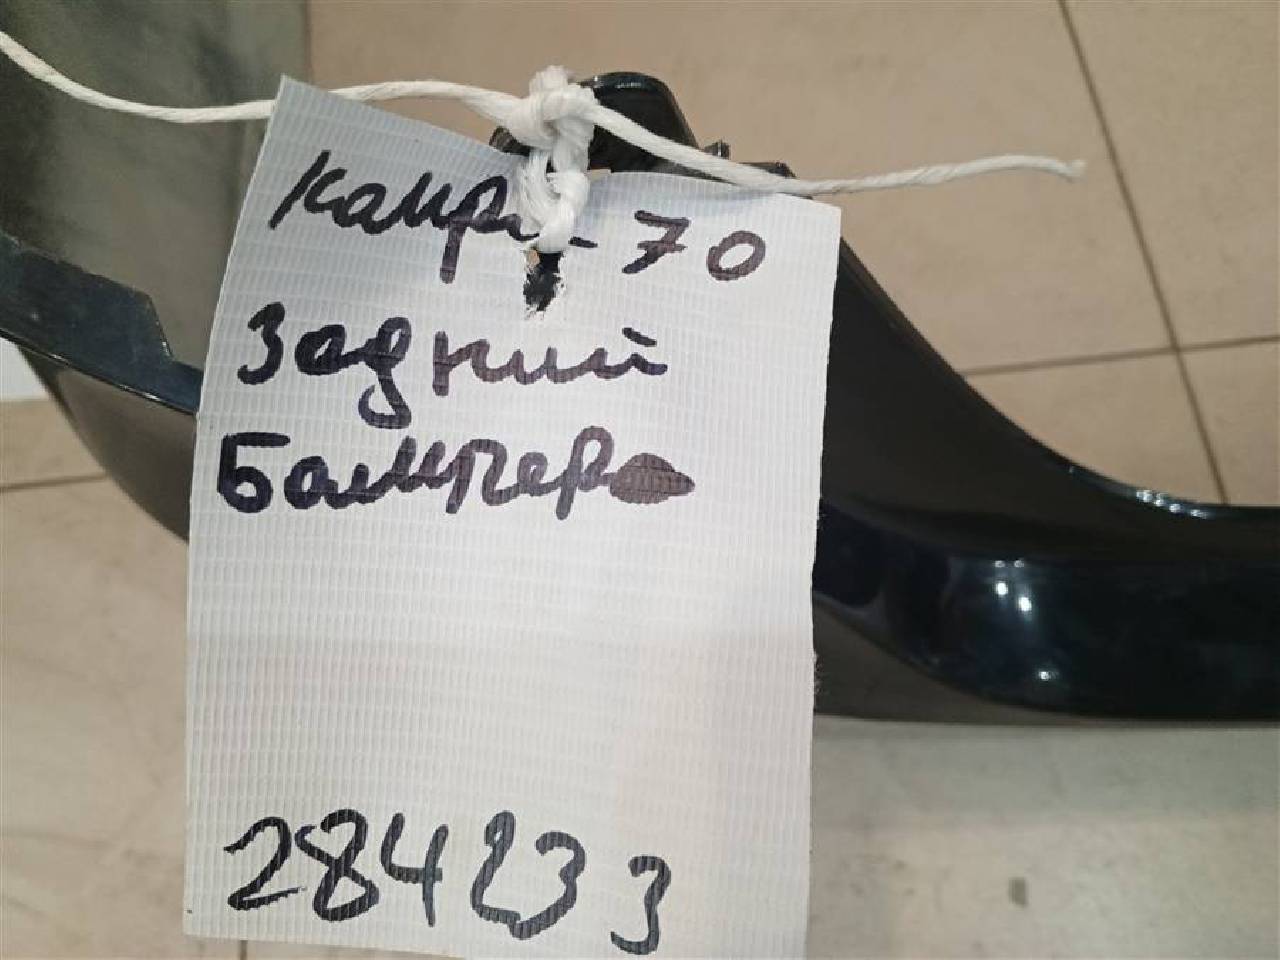 Камри-70
Задний
Бампер
284233